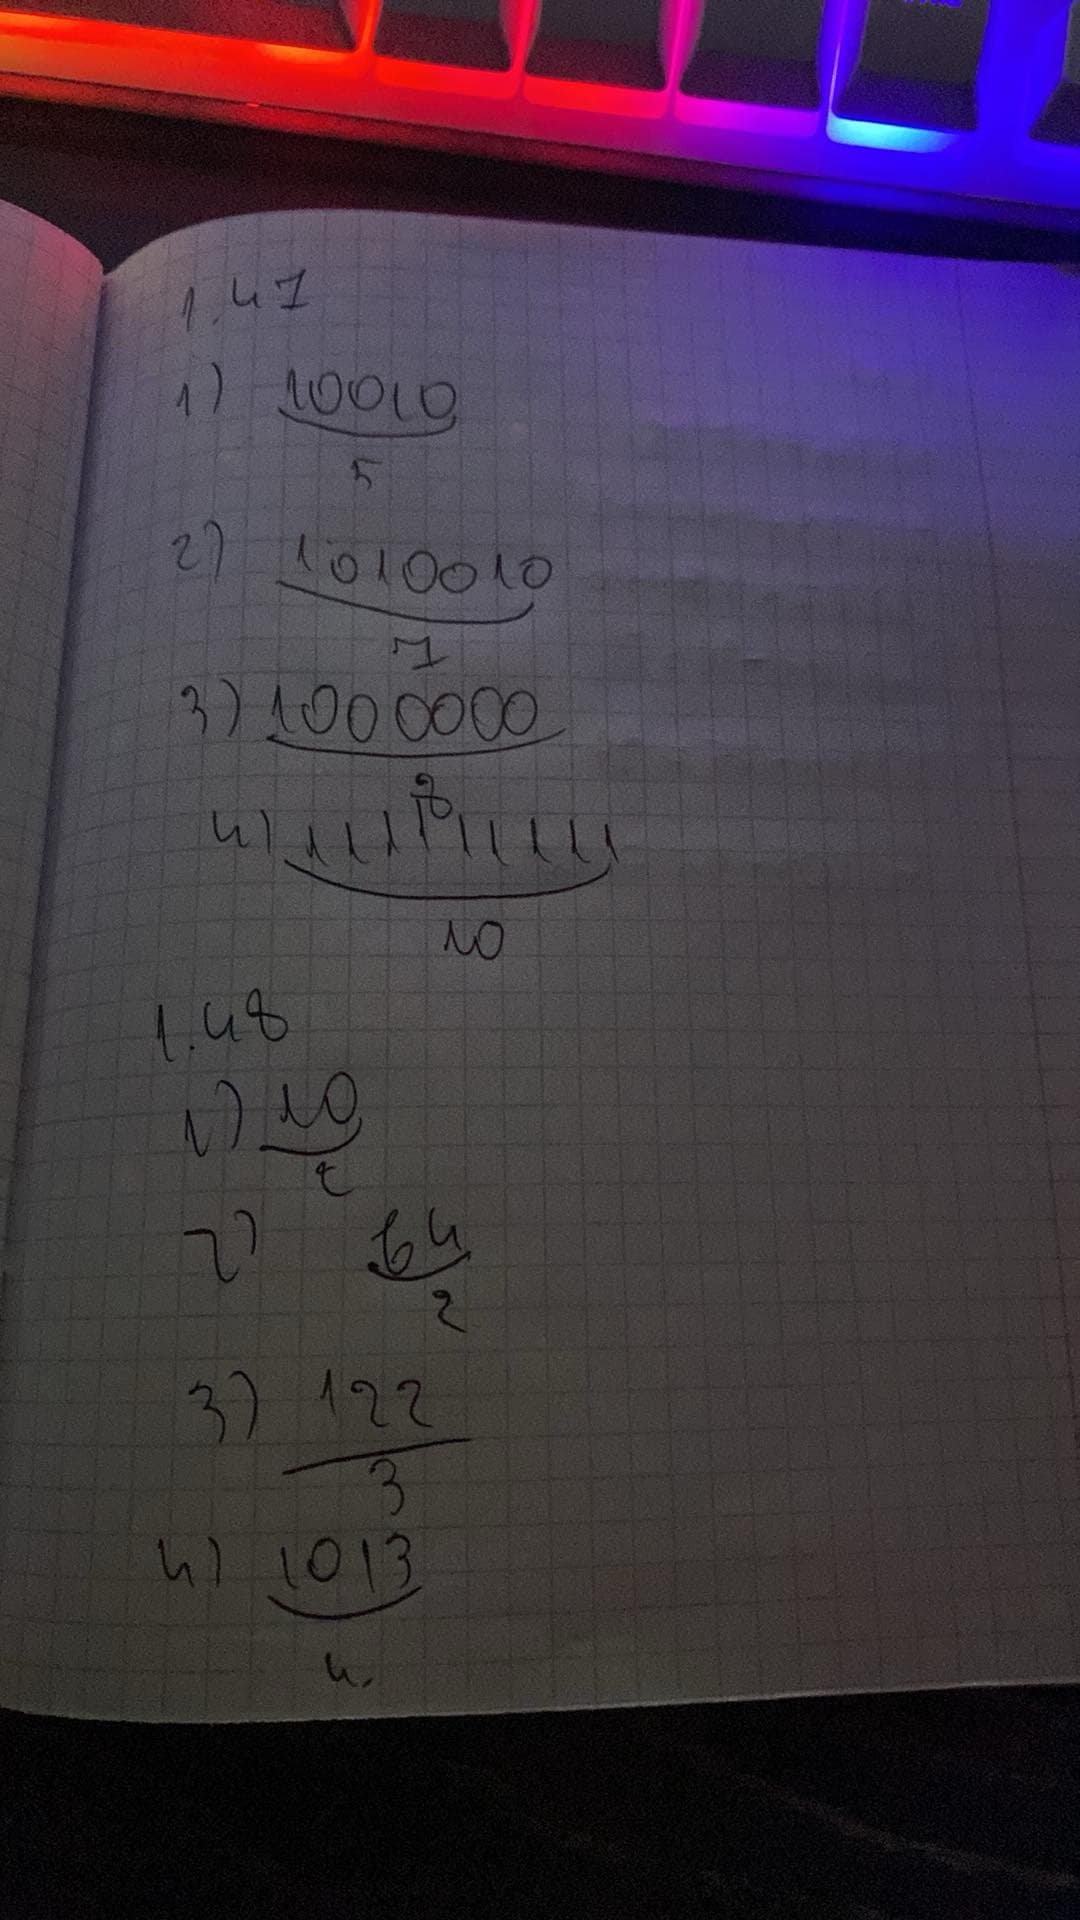 1.47
1) 10010
5
2) 1010010
7
3) 1000000
8
4) 1111111111
10
1.48
1) 10
2
2) 64
2
3) 122
3
4) 1013
4.